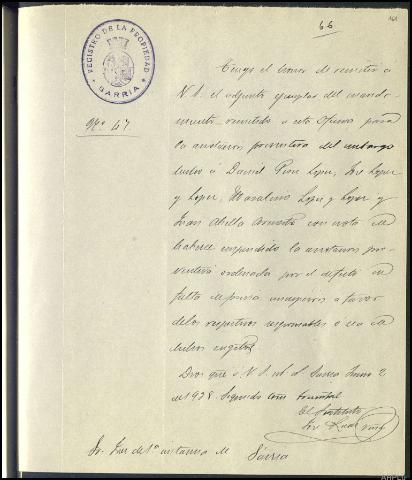 161
66
REGISTRO DE LA PROPIEDAD
SARRIA
Nº 47
Tengo el honor de remitir á
V. S. el adjunto ejemplar del manda-
miento remitido a esta Oficina para
la anotacion preventiva del embargo
hecho á Daniel Lopez, José Lopez
y Lopez, Marcelino Lopez y Lopez y
Juan Abella con nota de
haberse suspendido la anotacion pre-
ventiva ordenada por el defecto de
falta de previa inscripcion a favor
de los respectivos responsables ó sea de
dichos
Dios gue á V. S. Sarria Junio 2
de 1928
El Sustituto
José
Sr. Juez de 1ª instancia de Sarria